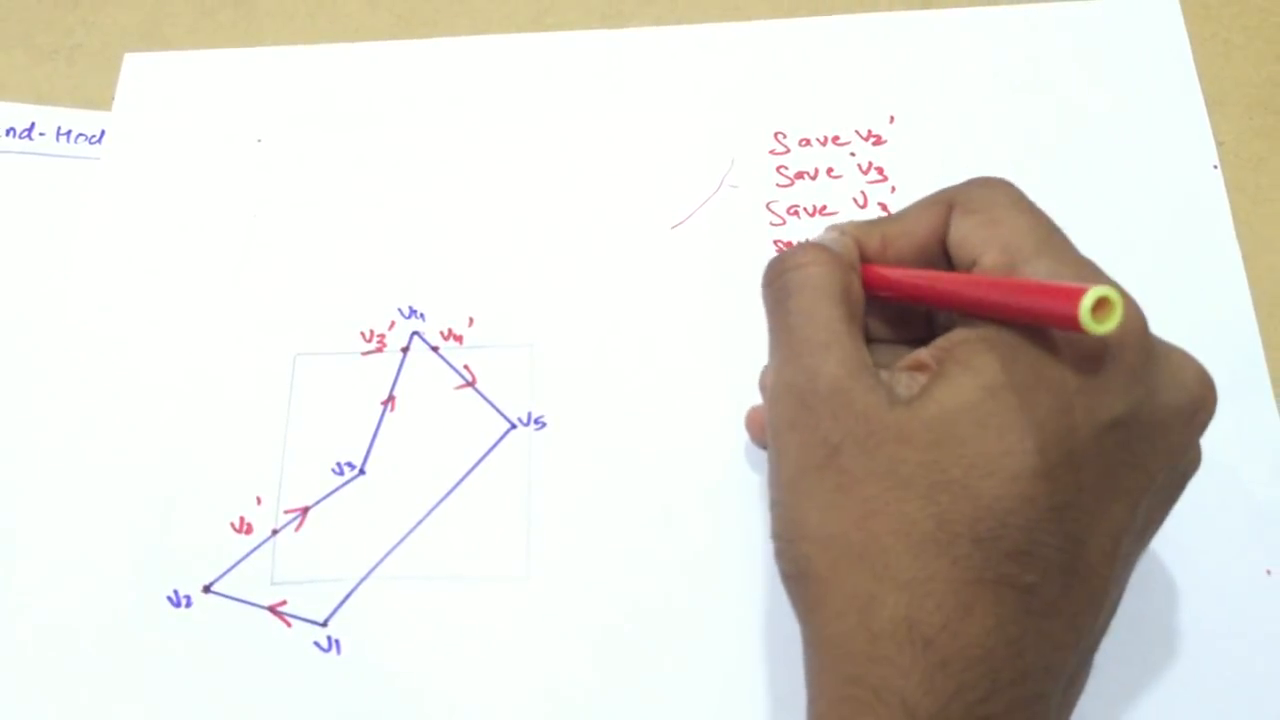 nd-Mod
Save v2'
Save v3
Save v3'
v4
v3'
v4'
v5
v3
v2'
v2
v1